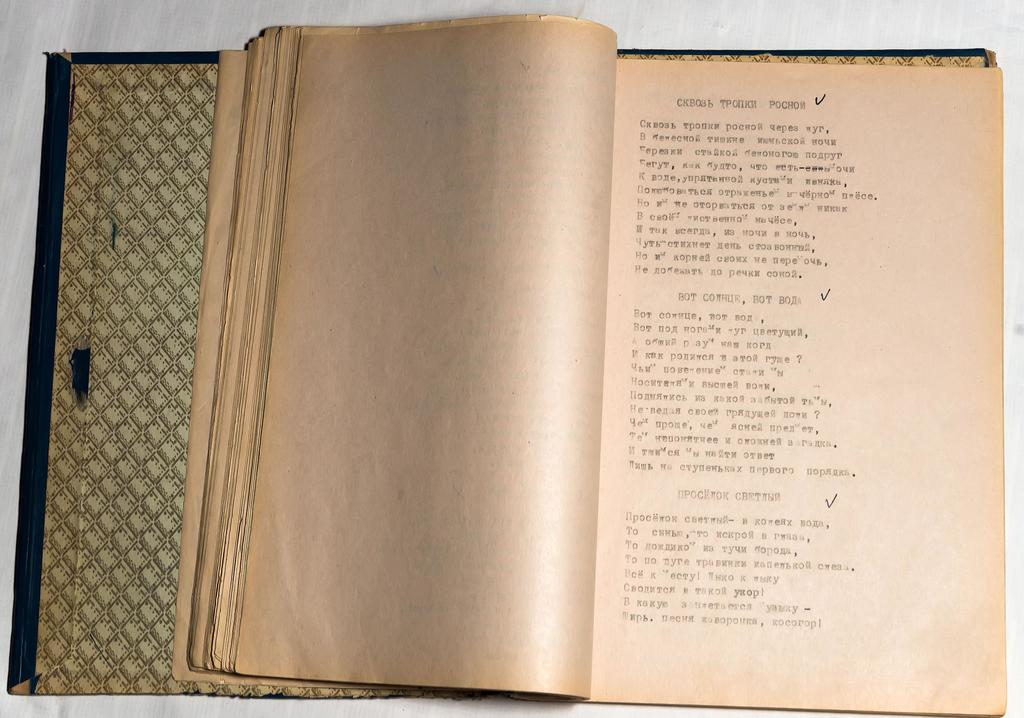 СКВОЗЬ ТРОПКИ РОСНОЙ
Сквозь тропки росной через луг,
В белесной тишине июньской ночи
Березки стайкой белоногою подруг
Бегут, как будто, что есть очи
К воде, упрятанной кустами ивняка,
Полюбоваться отраженьем в чёрном плёсе.
Но им не оторваться от земли никак
В своём лиственном начёсе,
И так всегда, из ночи в ночь,
Чуть стихнет день стозвонный,
Но им корней своих не перемочь,
Не добежать до речки сонной.
ВОТ СОЛНЦЕ, ВОТ ВОДА
Вот солнце, вот вода,
Вот под ногами луг цветущий,
А общий разум наш когда
И как родился в этой гуще ?
Чьим повелением стали мы
Носителями высшей воли,
Поднялись из какой забытой тьмы,
Не ведая своей грядущей доли ?
Чем проще, чем ясней предмет,
Тем непонятнее и сложней загадка.
И тщимся мы найти ответ
Лишь на ступеньках первого порядка.
ПРОСЁЛОК СВЕТЛЫЙ
Просёлок светлый- в колеях вода,
То синью,-то искрой в глаза,
То дождиком из тучи борода,
То по дуге травинки капелькой слеза.
Всё к месту! Лыко к лыку
Сводится в такой укор!
В какую заплетается музыку -
Ширь. песня жаворонка, косогор!